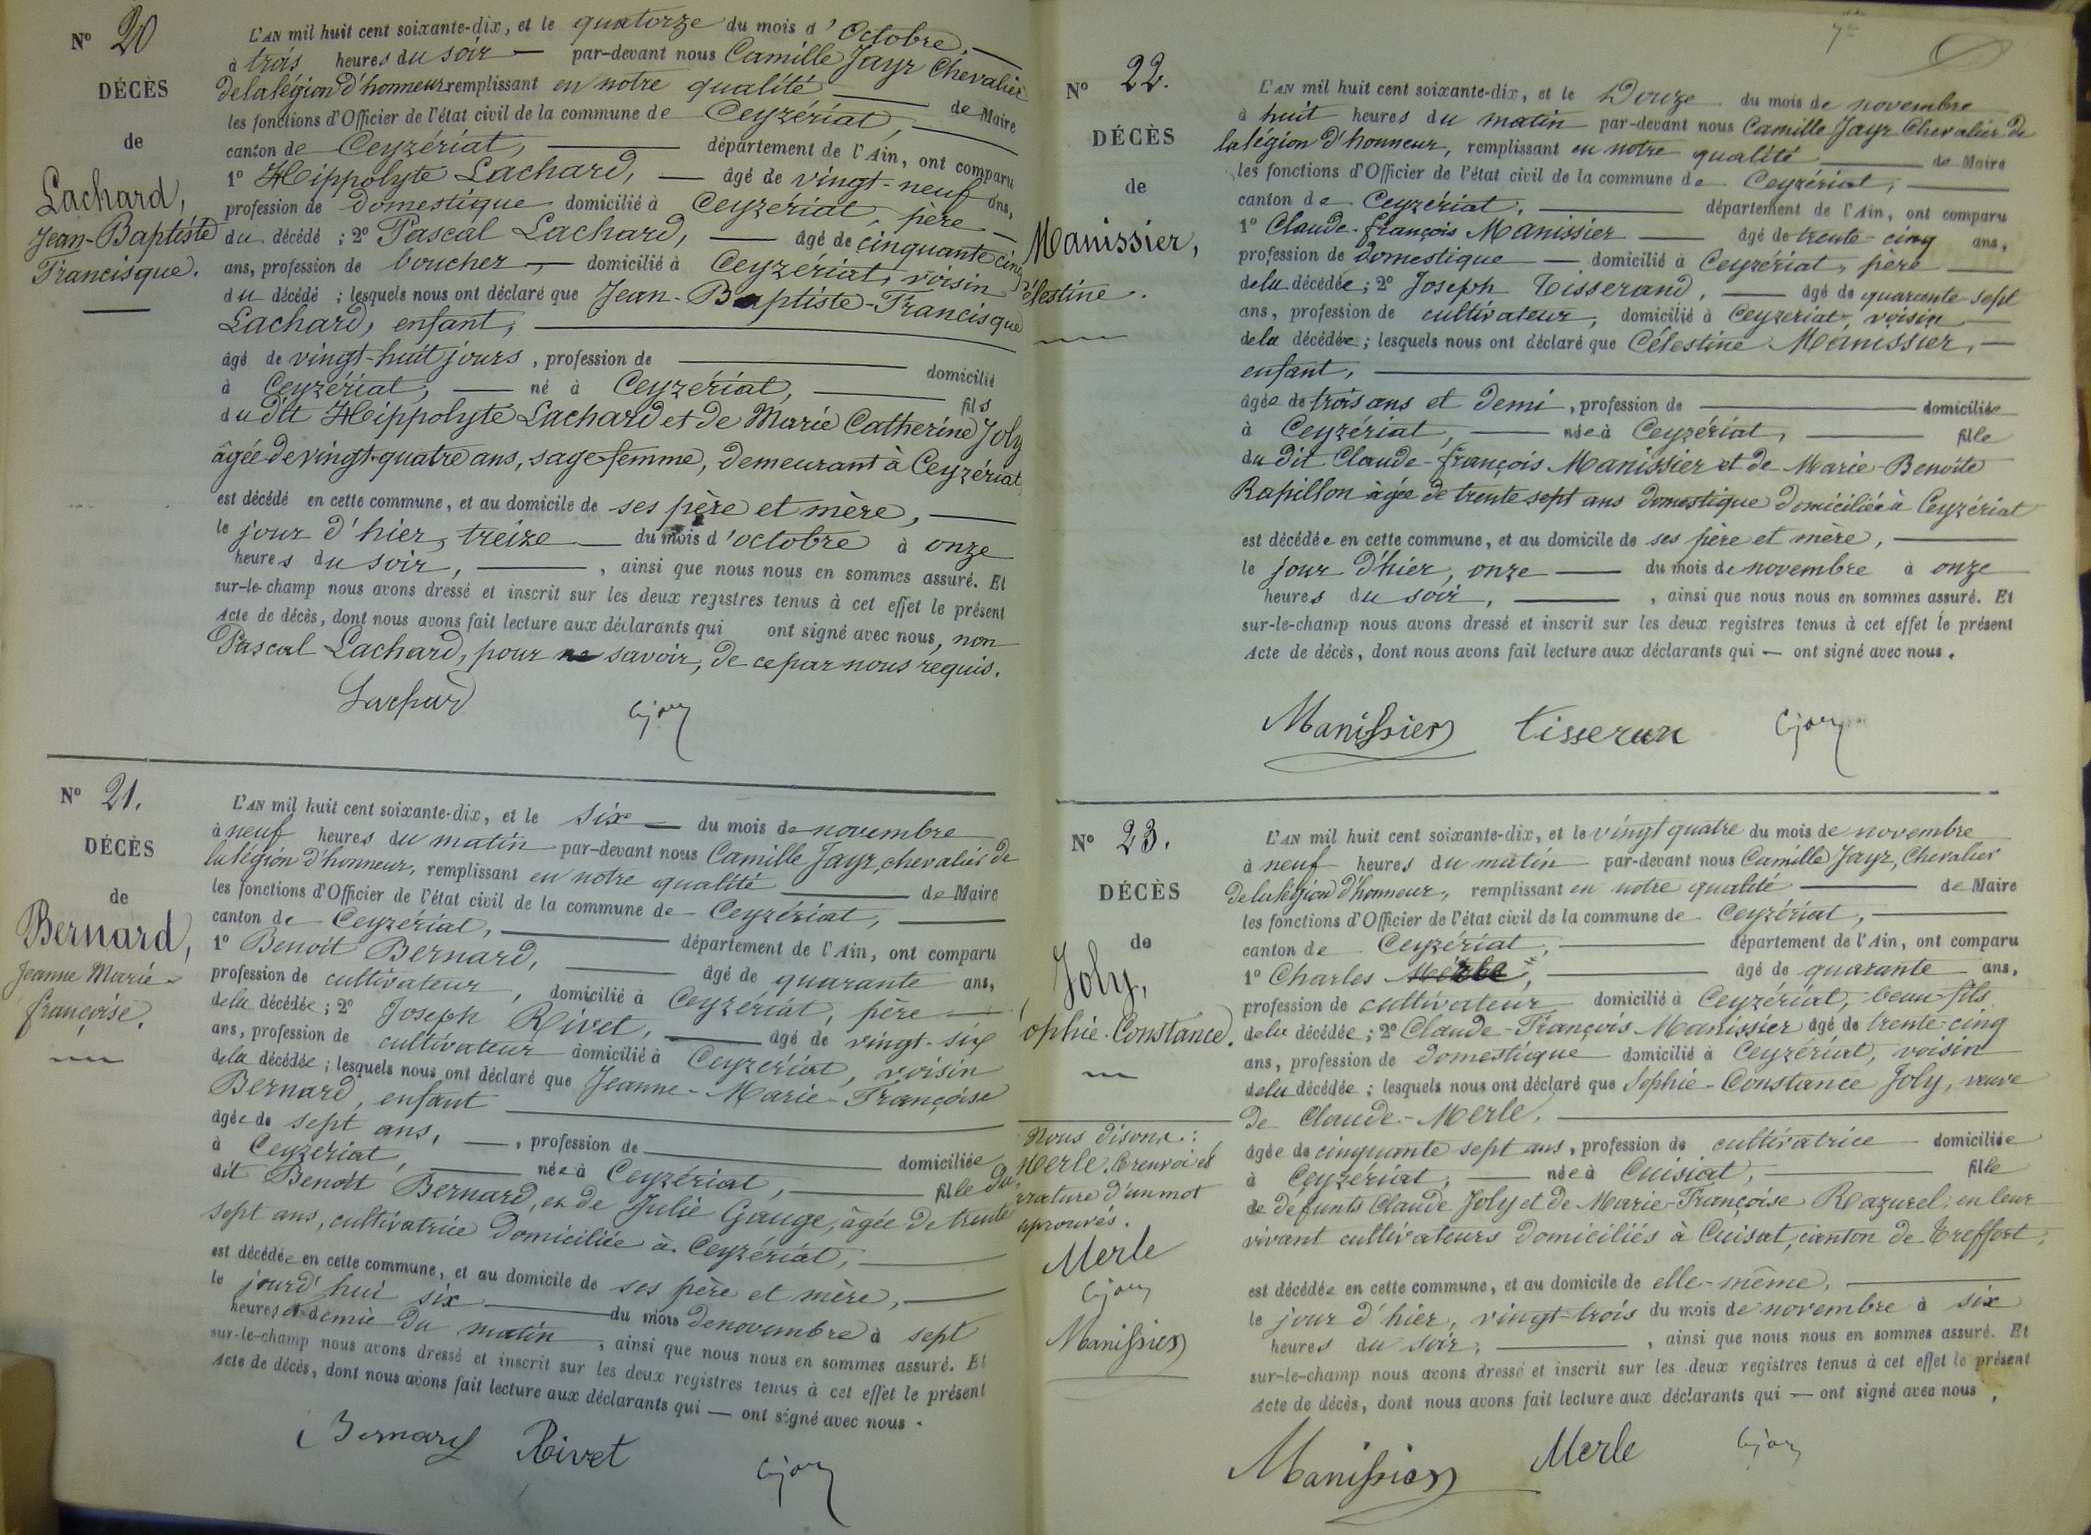 N° 20
DÉCÈS
de
Lachard,
Jean-Baptiste
Francisque.
L'AN mil huit cent soixante-dix, et le quatorze du mois d'Octobre,
à trois heures du soir par-devant nous Camille Jayr Chevalier
de la légion d'honneur remplissant en notre qualité de Maire
les fonctions d'Officier de l'état civil de la commune de Ceyzériat,
canton de Ceyzériat, département de l'Ain, ont comparu
1° Hippolyte Lachard, âgé de vingt-neuf ans,
profession de domestique domicilié à Ceyzeriat, père
du décédé ; 2° Pascal Lachard, âgé de cinquante cinq
ans, profession de boucher, domicilié à Ceyzériat, voisin
du décédé ; lesquels nous ont déclaré que Jean-Baptiste-Francisque
Lachard, enfant,
âgé de vingt-huit jours, profession de domicilié
à Ceyzériat, né à Ceyzériat, fils
du dit Hippolyte Lachard et de Marie Catherine Joly
âgée de vingt-quatre ans, sage-femme, demeurant à Ceyzériat
est décédé en cette commune, et au domicile de ses père et mère,
le jour d'hier, treize du mois d'octobre à onze
heures du soir, , ainsi que nous nous en sommes assuré. Et
sur-le-champ nous avons dressé et inscrit sur les deux registres tenus à cet effet le présent
Acte de décès, dont nous avons fait lecture aux déclarants qui ont signé avec nous, non
Pascal Lachard, pour ne savoir, de ce par nous requis.
Lachard
CJayr
N° 21.
DÉCÈS
de
Bernard,
Jeanne Marie
françoise.
L'AN mil huit cent soixante-dix, et le six du mois de novembre
à neuf heures du matin par-devant nous Camille Jayr, chevalier de
la légion d'honneur, remplissant en notre qualité de Maire
les fonctions d'Officier de l'état civil de la commune de Ceyzériat,
canton de Ceyzériat, département de l'Ain, ont comparu
1° Benoit Bernard, âgé de quarante ans,
profession de cultivateur, domicilié à Ceyzériat, père
de la décédée ; 2° Joseph Rivet, âgé de vingt-six
ans, profession de cultivateur domicilié à Ceyzériat, voisin
de la décédée ; lesquels nous ont déclaré que Jeanne-Marie-Françoise
Bernard, enfant
âgée de sept ans, , profession de domiciliée
à Ceyzeriat, née à Ceyzériat, fille du
dit Benoit Bernard, et de Julie Gauge, âgée de trente
sept ans, cultivatrice domiciliée à Ceyzériat,
est décédée en cette commune, et au domicile de ses père et mère,
le jourd'hui six du mois de novembre à sept
heures et demie du matin, ainsi que nous nous en sommes assuré. Et
sur-le-champ nous avons dressé et inscrit sur les deux registres tenus à cet effet le présent
Acte de décès, dont nous avons fait lecture aux déclarants qui — ont signé avec nous.
Bernard Rivet
CJayr
N° 22.
DÉCÈS
de
Manissier,
élestine.
L'AN mil huit cent soixante-dix, et le Douze du mois de novembre
à huit heures du matin par-devant nous Camille Jayr Chevalier de
la légion d'honneur, remplissant en notre qualité de Maire
les fonctions d'Officier de l'état civil de la commune de Ceyzériat,
canton de Ceyzériat, département de l'Ain, ont comparu
1° Claude-françois Manissier âgé de trente-cinq ans,
profession de domestique domicilié à Ceyzeriat, père
de la décédée ; 2° Joseph Tisserand, âgé de quarante sept
ans, profession de cultivateur, domicilié à Ceyzeriat, voisin
de la décédée ; lesquels nous ont déclaré que Célestine Manissier,
enfant,
âgée de trois ans et demi, profession de domiciliée
à Ceyzériat, née à Ceyzériat, fille
du dit Claude-françois Manissier et de Marie-Benoite
Rapillon âgée de trente sept ans domestique domiciliée à Ceyzériat
est décédée en cette commune, et au domicile de ses père et mère,
le jour d'hier, onze du mois de novembre à onze
heures du soir, , ainsi que nous nous en sommes assuré. Et
sur-le-champ nous avons dressé et inscrit sur les deux registres tenus à cet effet le présent
Acte de décès, dont nous avons fait lecture aux déclarants qui — ont signé avec nous.
Manissier tisseran CJayr
N° 23.
DÉCÈS
de
Joly,
ophie-Constance.
Nous disons :
Merle. Ce renvoi et
rature d'un mot
aprouvés.
Merle
CJayr
Manissier
L'AN mil huit cent soixante-dix, et le vingt quatre du mois de novembre
à neuf heures du matin par-devant nous Camille Jayr, Chevalier
de la légion d'honneur, remplissant en notre qualité de Maire
les fonctions d'Officier de l'état civil de la commune de Ceyzériat,
canton de Ceyzériat, département de l'Ain, ont comparu
1° Charles âgé de quarante ans,
profession de cultivateur domicilié à Ceyzériat, beau-fils
de la décédée ; 2° Claude-François Manissier âgé de trente-cinq
ans, profession de domestique domicilié à Ceyzériat, voisin
de la décédée ; lesquels nous ont déclaré que Sophie-Constance Joly, veuve
de Claude-Merle.
âgée de cinquante sept ans, profession de cultivatrice domiciliée
à Ceyzériat, née à Cuisiat, fille
de défunts Claude Joly et de Marie-Françoise Razurel, en leur
vivant cultivateurs domiciliés à Cuisat, canton de Treffort,
est décédée en cette commune, et au domicile de elle-même,
le jour d'hier, vingt-trois du mois de novembre à six
heures du soir, , ainsi que nous nous en sommes assuré. Et
sur-le-champ nous avons dressé et inscrit sur les deux registres tenus à cet effet le présent
Acte de décès, dont nous avons fait lecture aux déclarants qui — ont signé avec nous,
Manissier Merle CJayr